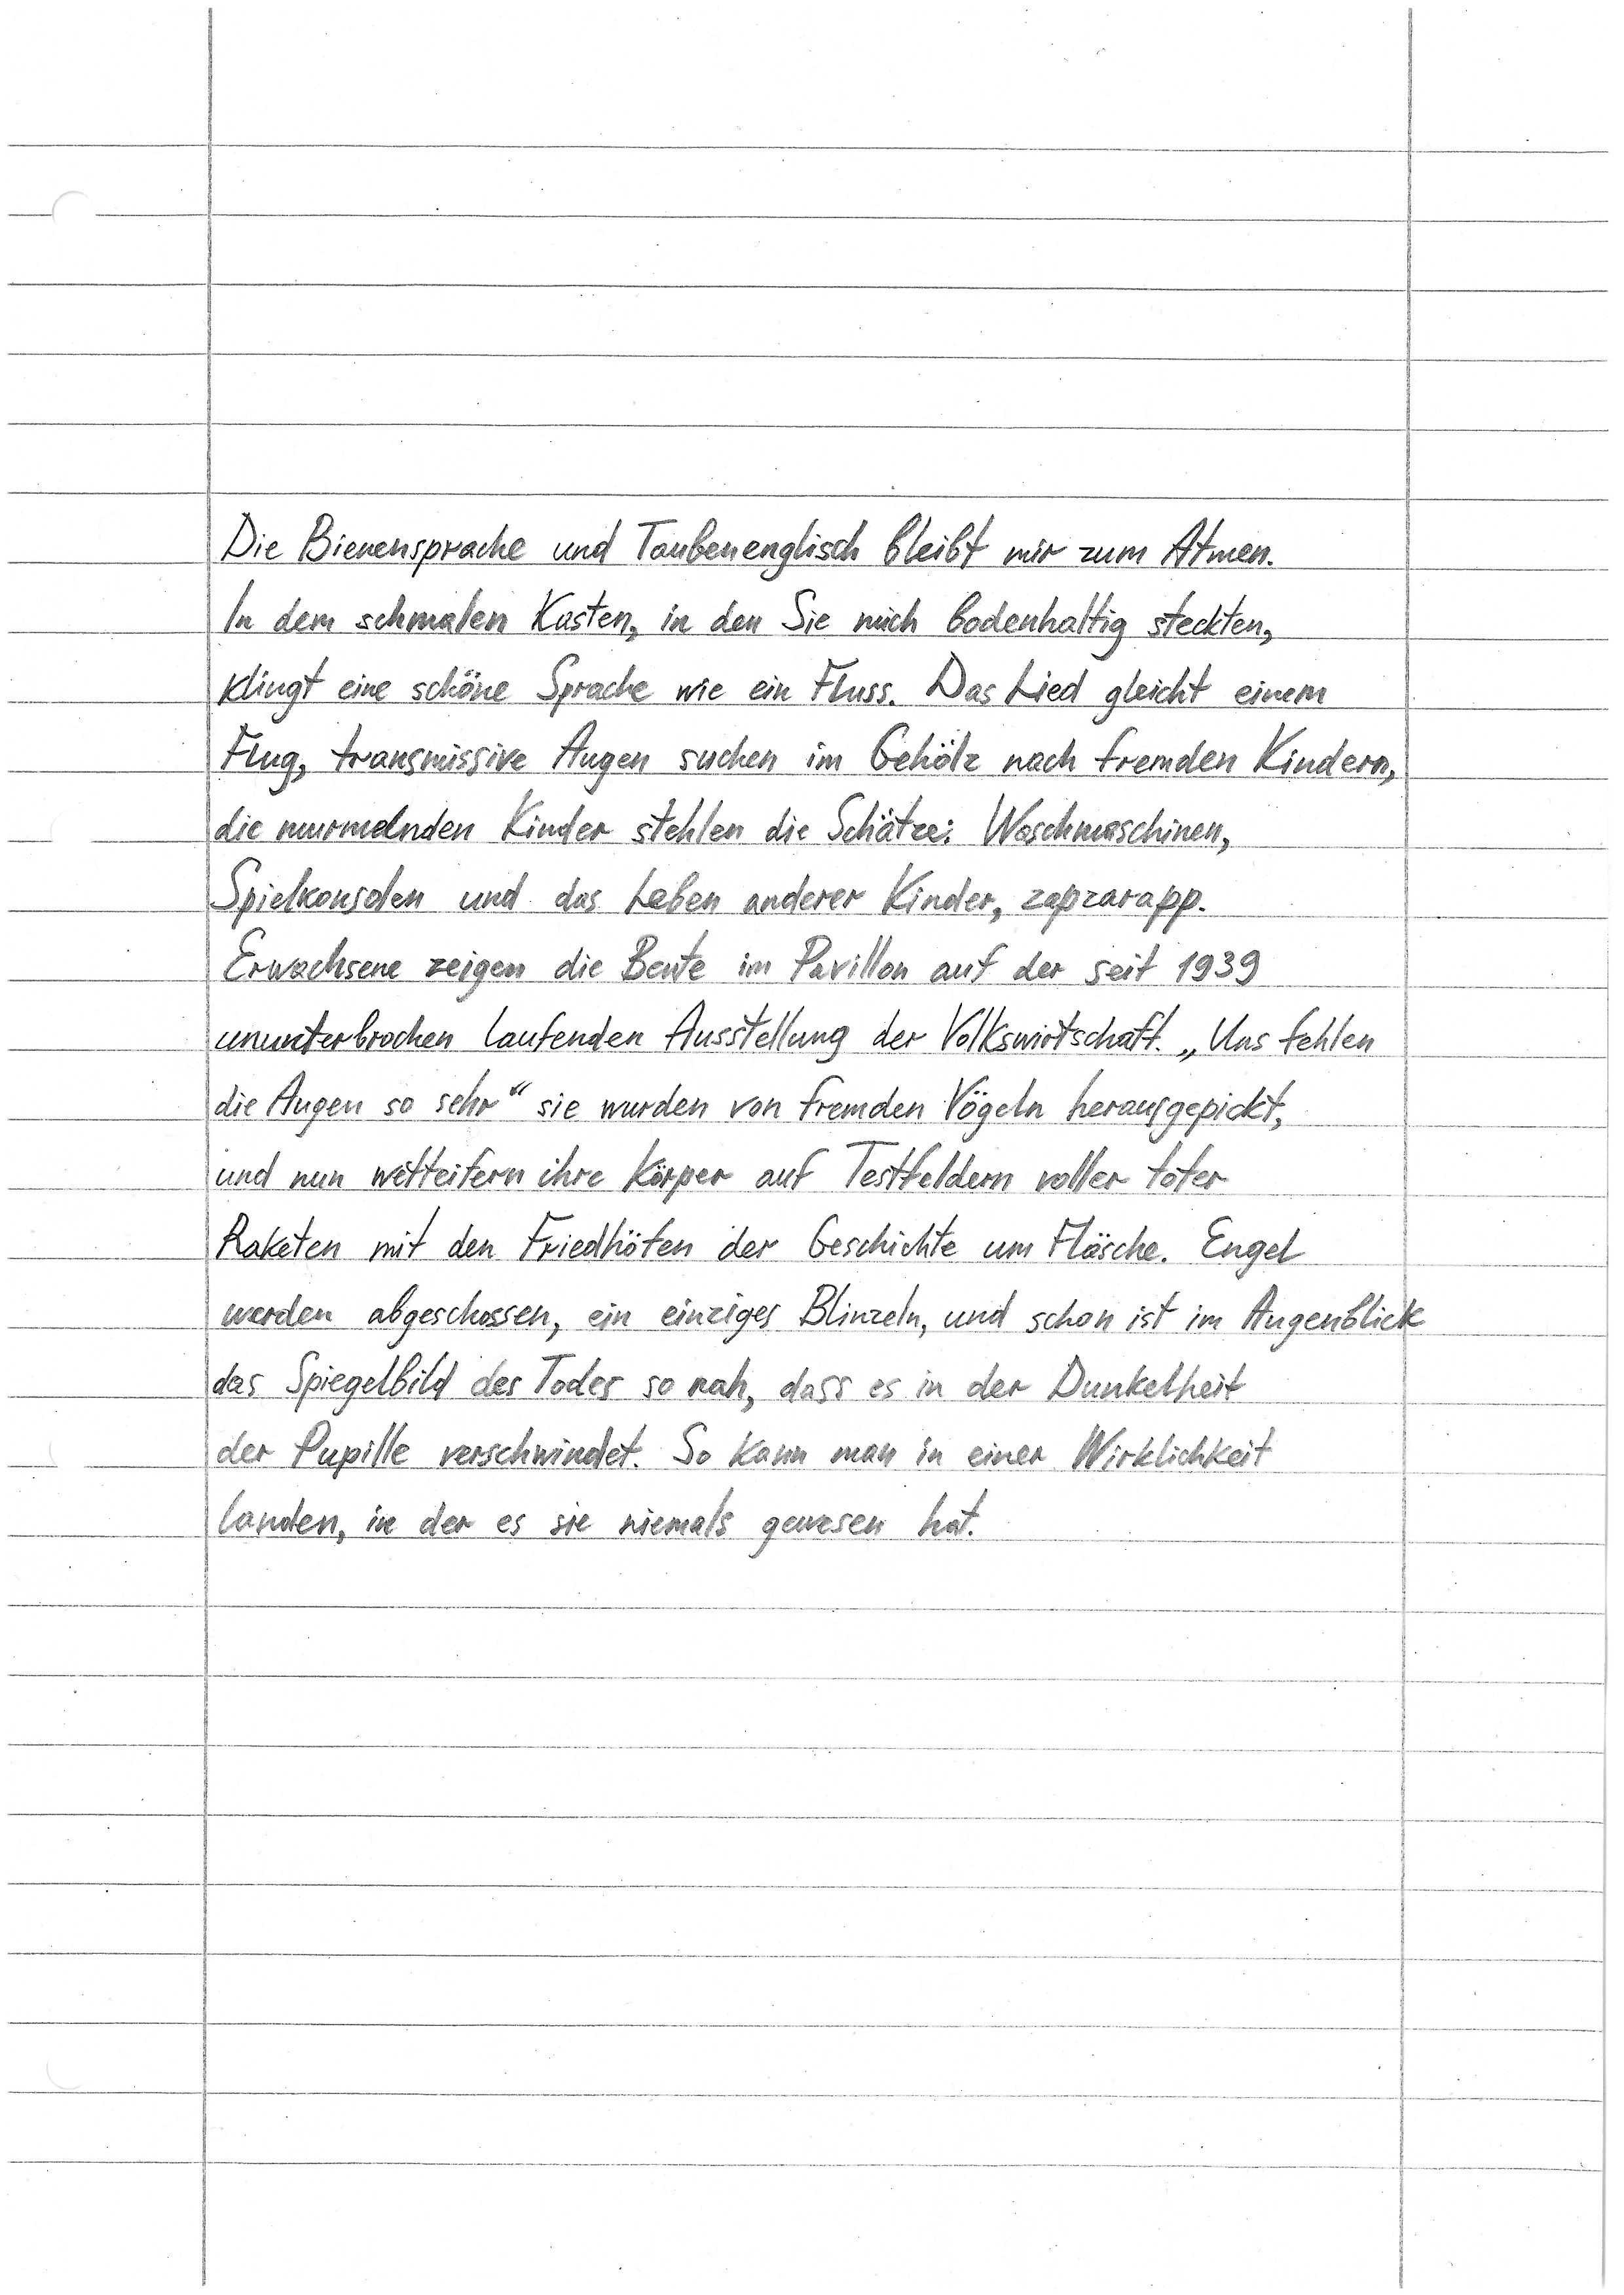 Die Bienensprache und Taubenenglisch bleibt mir zum Atmen.
In dem schmalen Kasten, in den Sie mich bodenhaltig steckten,
klingt eine schöne Sprache wie ein Fluss. Das Lied gleicht einem
Flug, transmissive Augen suchen im Gehölz nach fremden Kindern,
die murmelnden Kinder stehlen die Schätze: Waschmaschinen,
Spielkonsolen und das Leben anderer Kinder, zapzarapp.
Erwachsene zeigen die Beute im Pavillon auf der seit 1939
ununterbrochen laufenden Ausstellung der Volkswirtschaft. „Uns fehlen
die Augen so sehr“ sie wurden von fremden Vögeln herausgepickt,
und nun wetteifern ihre Körper auf Testfeldern voller toter
Raketen mit den Friedhöfen der Geschichte um Fläsche. Engel
werden abgeschossen, ein einziges Blinzeln, und schon ist im Augenblick
das Spiegelbild des Todes so nah, dass es in der Dunkelheit
der Pupille verschwindet. So kann man in einer Wirklichkeit
landen, in der es sie niemals gewesen hat.